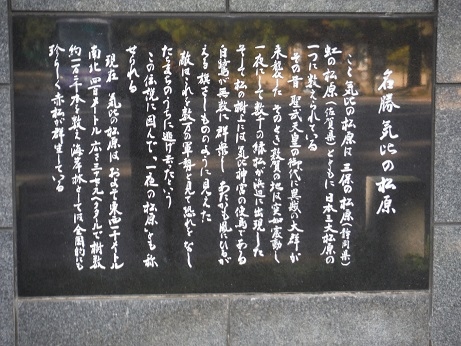 名勝 気比の松原
ここ気比の松原は 三保の松原(静岡県)
虹の松原(佐賀県)とともに 日本三大松原の
一つに数えられている
その昔 聖武天皇の御代に異賊の大群が
来襲した そのとき敦賀の地は突如震動し
一夜にして数千の緑松が浜辺に出現した
そして松の樹上には気比神宮の使鳥である
白鷺が無数に群衆し あたかも風にひるが
える旗さしもののように見えた
敵はこれを数万の軍勢と見て恐れをなし
たちまちのうちに逃げ去ったという
この伝説に因んで 一夜の松原とも称
せられる
現在 気比の松原は およそ東西一千メートル
南北四百メートル 広さ三十九ヘクタールで樹数
約一万三千本を数え 海岸林としては全国的にも
珍らしく赤松が群生している